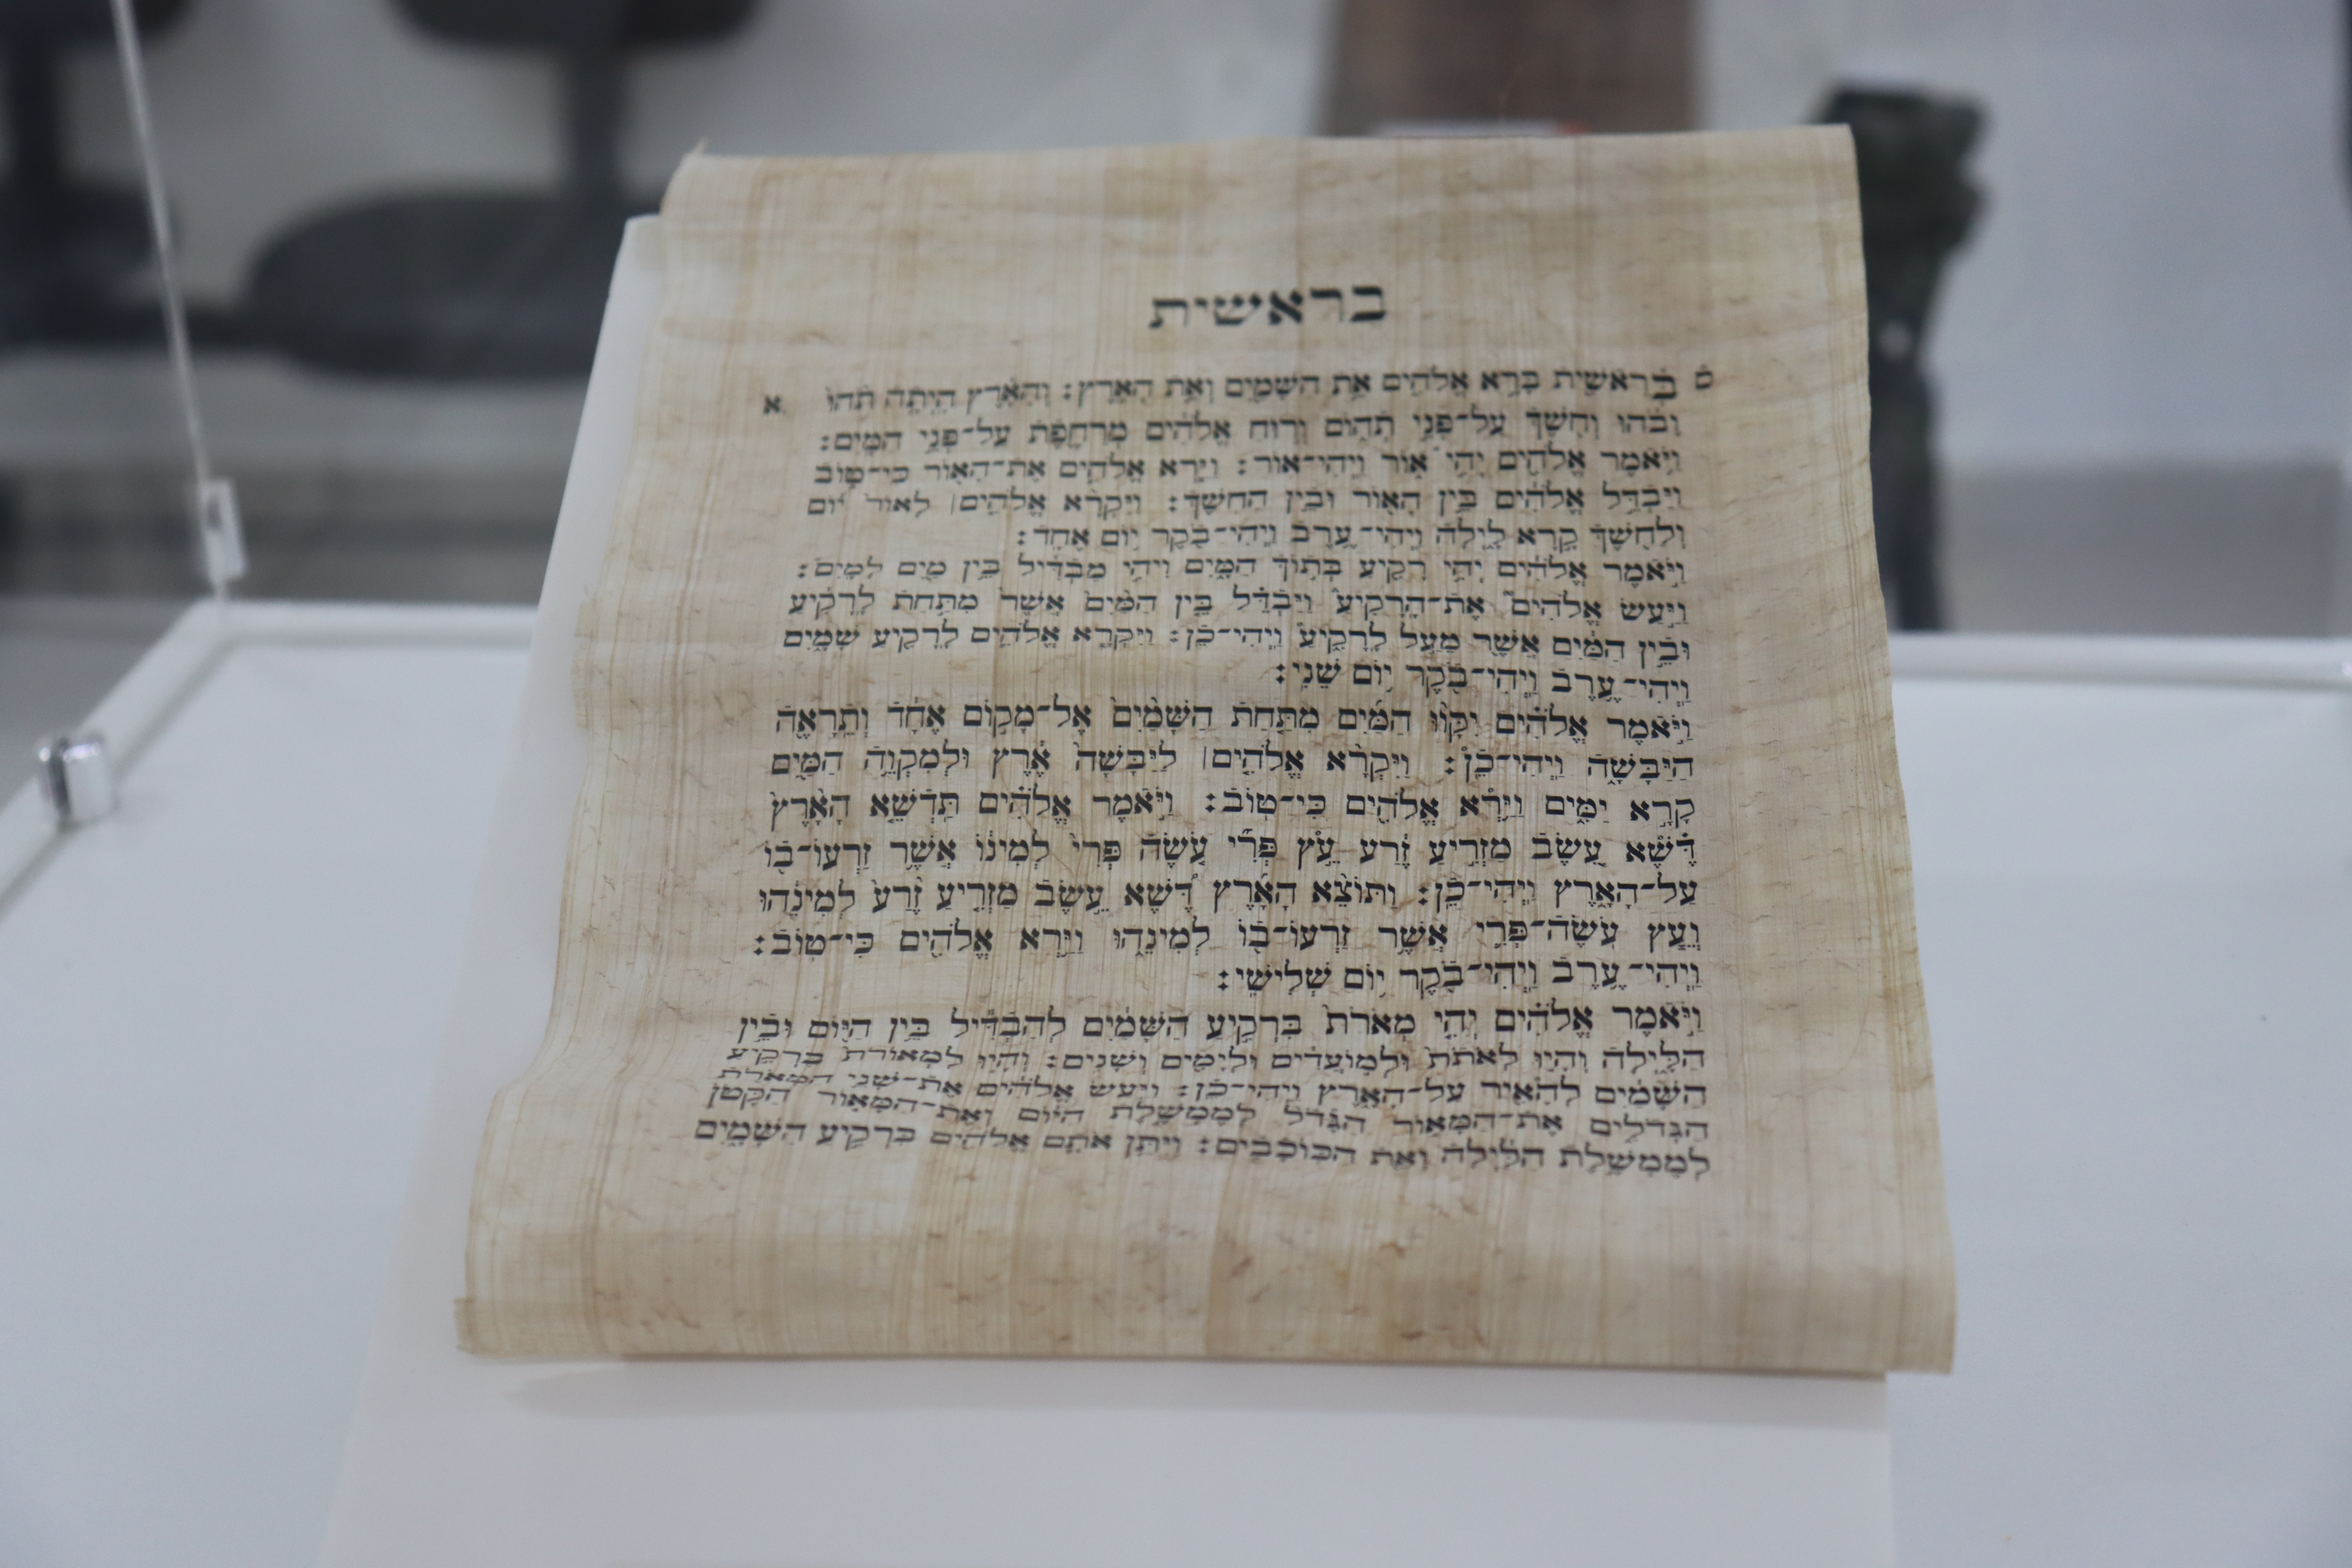 בראשית
ס בְּרֵאשִׁ֖ית בָּרָ֣א אֱלֹהִ֑ים אֵ֥ת הַשָּׁמַ֖יִם וְאֵ֥ת הָאָֽרֶץ׃ וְהָאָ֗רֶץ הָיְתָ֥ה תֹ֙הוּ֙ א
וָבֹ֔הוּ וְחֹ֖שֶׁךְ עַל־פְּנֵ֣י תְה֑וֹם וְר֣וּחַ אֱלֹהִ֔ים מְרַחֶ֖פֶת עַל־פְּנֵ֥י הַמָּֽיִם׃
וַיֹּ֥אמֶר אֱלֹהִ֖ים יְהִ֣י א֑וֹר וַֽיְהִי־אֽוֹר׃ וַיַּ֧רְא אֱלֹהִ֛ים אֶת־הָא֖וֹר כִּי־ט֑וֹב
וַיַּבְדֵּ֣ל אֱלֹהִ֔ים בֵּ֥ין הָא֖וֹר וּבֵ֥ין הַחֹֽשֶׁךְ׃ וַיִּקְרָ֨א אֱלֹהִ֤ים׀ לָאוֹר֙ י֔וֹם
וְלַחֹ֖שֶׁךְ קָ֣רָא לָ֑יְלָה וַֽיְהִי־עֶ֥רֶב וַֽיְהִי־בֹ֖קֶר י֥וֹם אֶחָֽד׃
וַיֹּ֣אמֶר אֱלֹהִ֔ים יְהִ֥י רָקִ֖יעַ בְּת֣וֹךְ הַמָּ֑יִם וִיהִ֣י מַבְדִּ֔יל בֵּ֥ין מַ֖יִם לָמָֽיִם׃
וַיַּ֣עַשׂ אֱלֹהִים֮ אֶת־הָרָקִיעַ֒ וַיַּבְדֵּ֗ל בֵּ֤ין הַמַּ֙יִם֙ אֲשֶׁר֙ מִתַּ֣חַת לָרָקִ֔יעַ
וּבֵ֣ין הַמַּ֔יִם אֲשֶׁ֖ר מֵעַ֣ל לָרָקִ֑יעַ וַֽיְהִי־כֵֽן׃ וַיִּקְרָ֧א אֱלֹהִ֛ים לָֽרָקִ֖יעַ שָׁמָ֑יִם
וַֽיְהִי־עֶ֥רֶב וַֽיְהִי־בֹ֖קֶר י֥וֹם שֵׁנִֽי׃
וַיֹּ֣אמֶר אֱלֹהִ֗ים יִקָּו֨וּ הַמַּ֜יִם מִתַּ֤חַת הַשָּׁמַ֙יִם֙ אֶל־מָק֣וֹם אֶחָ֔ד וְתֵרָאֶ֖ה
הַיַּבָּשָׁ֑ה וַֽיְהִי־כֵֽן׃ וַיִּקְרָ֨א אֱלֹהִ֤ים׀ לַיַּבָּשָׁה֙ אֶ֔רֶץ וּלְמִקְוֵ֥ה הַמַּ֖יִם
קָרָ֣א יַמִּ֑ים וַיַּ֥רְא אֱלֹהִ֖ים כִּי־טֽוֹב׃ וַיֹּ֣אמֶר אֱלֹהִ֗ים תַּֽדְשֵׁ֤א הָאָ֙רֶץ֙
דֶּ֔שֶׁא עֵ֚שֶׂב מַזְרִ֣יעַ זֶ֔רַע עֵ֣ץ פְּרִ֞י עֹ֤שֶׂה פְּרִי֙ לְמִינ֔וֹ אֲשֶׁ֥ר זַרְעוֹ־ב֖וֹ
עַל־הָאָ֑רֶץ וַֽיְהִי־כֵֽן׃ וַתּוֹצֵ֨א הָאָ֜רֶץ דֶּ֠שֶׁא עֵ֣שֶׂב מַזְרִ֤יעַ זֶ֙רַע֙ לְמִינֵ֔הוּ
וְעֵ֧ץ עֹֽשֶׂה־פְּרִ֛י אֲשֶׁ֥ר זַרְעוֹ־ב֖וֹ לְמִינֵ֑הוּ וַיַּ֥רְא אֱלֹהִ֖ים כִּי־טֽוֹב׃
וַֽיְהִי־עֶ֥רֶב וַֽיְהִי־בֹ֖קֶר י֥וֹם שְׁלִישִֽׁי׃
וַיֹּ֣אמֶר אֱלֹהִ֗ים יְהִ֤י מְאֹרֹת֙ בִּרְקִ֣יעַ הַשָּׁמַ֔יִם לְהַבְדִּ֕יל בֵּ֥ין הַיּ֖וֹם וּבֵ֣ין
הַלָּ֑יְלָה וְהָי֤וּ לְאֹתֹת֙ וּלְמ֣וֹעֲדִ֔ים וּלְיָמִ֖ים וְשָׁנִֽים׃ וְהָי֤וּ לִמְאוֹרֹת֙ בִּרְקִ֣יעַ
הַשָּׁמַ֔יִם לְהָאִ֖יר עַל־הָאָ֑רֶץ וַֽיְהִי־כֵֽן׃ וַיַּ֣עַשׂ אֱלֹהִ֔ים אֶת־שְׁנֵ֥י הַמְּאֹרֹ֖ת
הַגְּדֹלִ֑ים אֶת־הַמָּא֤וֹר הַגָּדֹל֙ לְמֶמְשֶׁ֣לֶת הַיּ֔וֹם וְאֶת־הַמָּא֤וֹר הַקָּטֹן֙
לְמֶמְשֶׁ֣לֶת הַלַּ֔יְלָה וְאֵ֖ת הַכּוֹכָבִֽים׃ וַיִּתֵּ֥ן אֹתָ֛ם אֱלֹהִ֖ים בִּרְקִ֣יעַ הַשָּׁמָ֑יִם